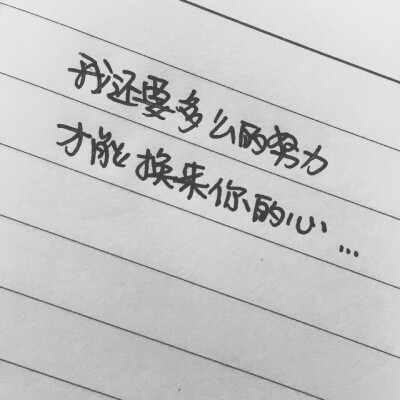 我还要多么的努力
才能换来你的心...